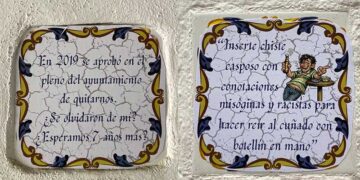 En 2019 se aprobó en el
pleno del ayuntamiento
de quitarnos.
¿Se olvidaron de mi?
¿Esperamos 7 años más?
"Inserte chiste
casposo con
conotaciones
misóginas y racistas para
hacer reir al cuñado con
botellín en mano"